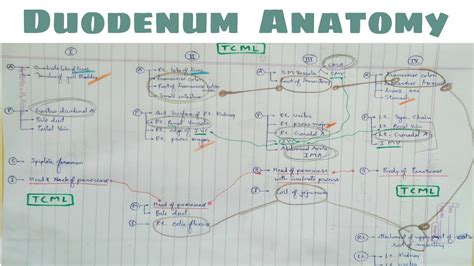 Duodenum Anatomy
TCML
I
II
III
IV
A
Quadrate lobe of liver
Rt. lobe of liver
Transverse colon
Small intestine
S.M. Vessels
SMA
SMV
Root of mesentery
Transverse colon
Liver
Stomach
P
Gastro duodenal A
Bile duct
Portal Vein
P
Ant. Surface of Rt. Kidney
Rt. Renal Vessels
Rt. edge of IVC
Rt. Psoas major
P
Rt. Ureter
Rt. Psoas major
Rt. Gonadal A
IVC
Abdominal Aorta
IMA
P
Lt. Symp. Chain
Lt. Renal
Lt. Gonadal A
IMV
S
Epiploic foramen
I
Head & Neck of pancreas
TCML
M
Head of pancreas
Bile duct
L
Rt. colic flexure
S
Head of pancreas
with uncinate process
I
Coil of jejunum
S
Body of Pancreas
TCML
Rt
Attachment of upper part of
root of mesentery
Lt
Lt. Kidney
Lt. Ureter